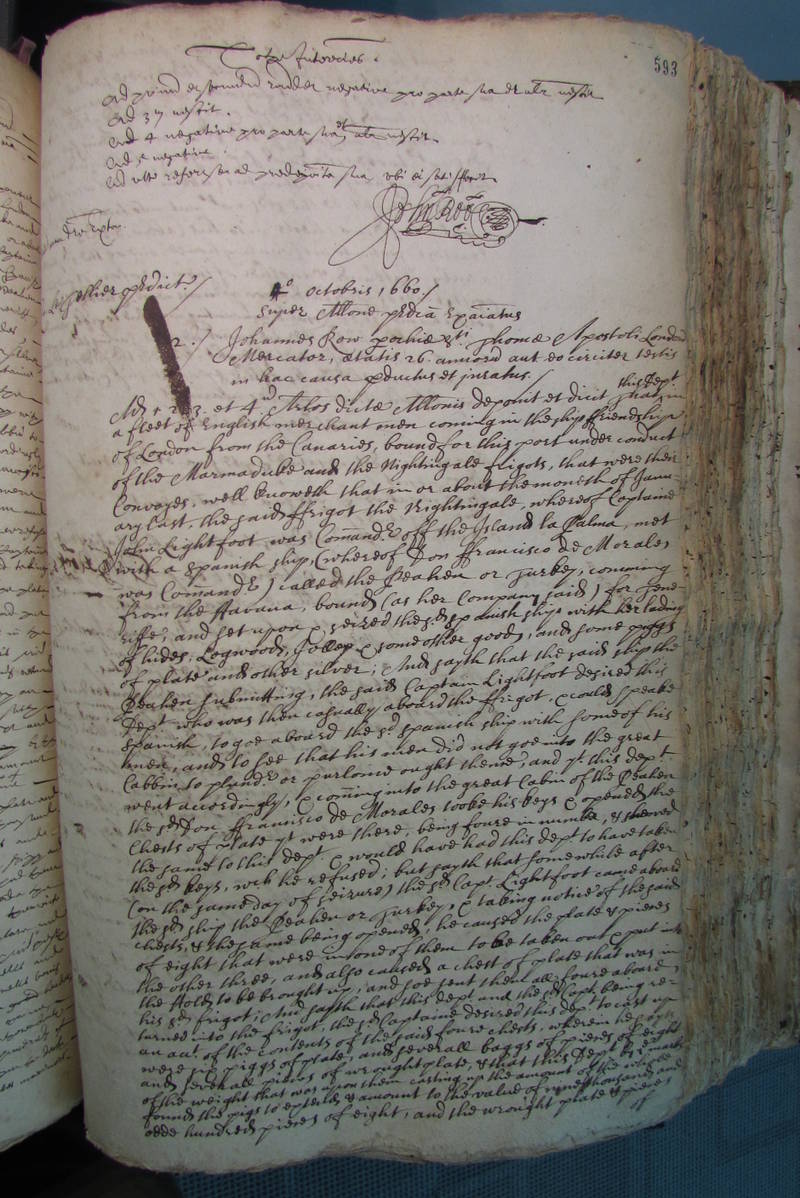 593
Ad primum respondet negative pro parte sua et aliter nescit
Ad 3 nescit.
Ad 4 negative pro parte sua et aliter nescit.
Ad negative.
Ad ult refert se ad predeposita sua,
John Row
4o Octobris, 1660./
Super Allone pdca Examinatus
2./ Johannes Row pochiæ Sti Thomæ Apostoli London
Mercator, ætatis 26 annord aut eo circiter testis
in hac causa pductus et juratus./
Ad 1 2 3. et 4 Arlos dictæ Allonis deponit et dicit That this dept in
a fleet of English merchant men coming in the ship ffriendship
of London from the Canaries, bound for this port under conduct
of the Marmaduke and the Nightingale frigots, that were their
Convoyes, well knoweth that in or about the moneth of Janu-
ary last, the said ffrigot the Nightingale, whereof Captaine
John Lightfoot was Comandr off the Island la Palma, met
with a Spanish ship, (whereof Don ffrancisco de Morales
was Comandr) called the Peahen or Turkey, comming
from the Havana, bound (as her Company said) for Tene-
riffe, and set upon & seized the sd Spanish ship with her lading
of hides, Logwood, Jollep & some other goods, and some piggs
of plate and other silver; And sayth that the said ship the
Peahen submitting, the said Captain Lightfoot desired this
dept who was then casually aboard the ffrigot, & could speake
Spanish, to goe aboard the sd Spanish ship with some of his
men, and to see that his men did not goe into the great
Cabbin to plunder or purloine ought thence, and yt this dept
went accordingly, & coming into the great Cabin of the Peahen
the sd Don ffrancisco de Morales tooke his keys & opened the
Chests of plate yt were there, being foure in number, & shewed
the same to this dept & would have had this dept to have taken
the sd keys, wch he refused; but sayth that somewhile after
(on the same day of seizure) the sd Capt Lightfoot came aboard
the sd ship the Peahen or Turkey, & taking notice of the said
chests, & the same being opened, he caused the plate & pieces
of eight that were in one of them to be taken out & put into
the other three, and also caused a chest of plate that was in
the Hold to be brought up, and soe sent them all foure aboard
his sd frigot; And sayth that this dept and the sd Capt being re-
turned into the frigot, the sd Captaine desired this dept to cast up
an acct of the contents of the said foure chests, wherein he sayth
were six piggs of plate, and severall baggs of pieces of eight
and severall pieces of wrought plate, & that this dept by ye marke
of the weight that was upon them casting up the amount of the whole
found the pigs to extend & amount to the value of nyne thousand and
odde hundred pieces of eight, and the wrought plate & pieces